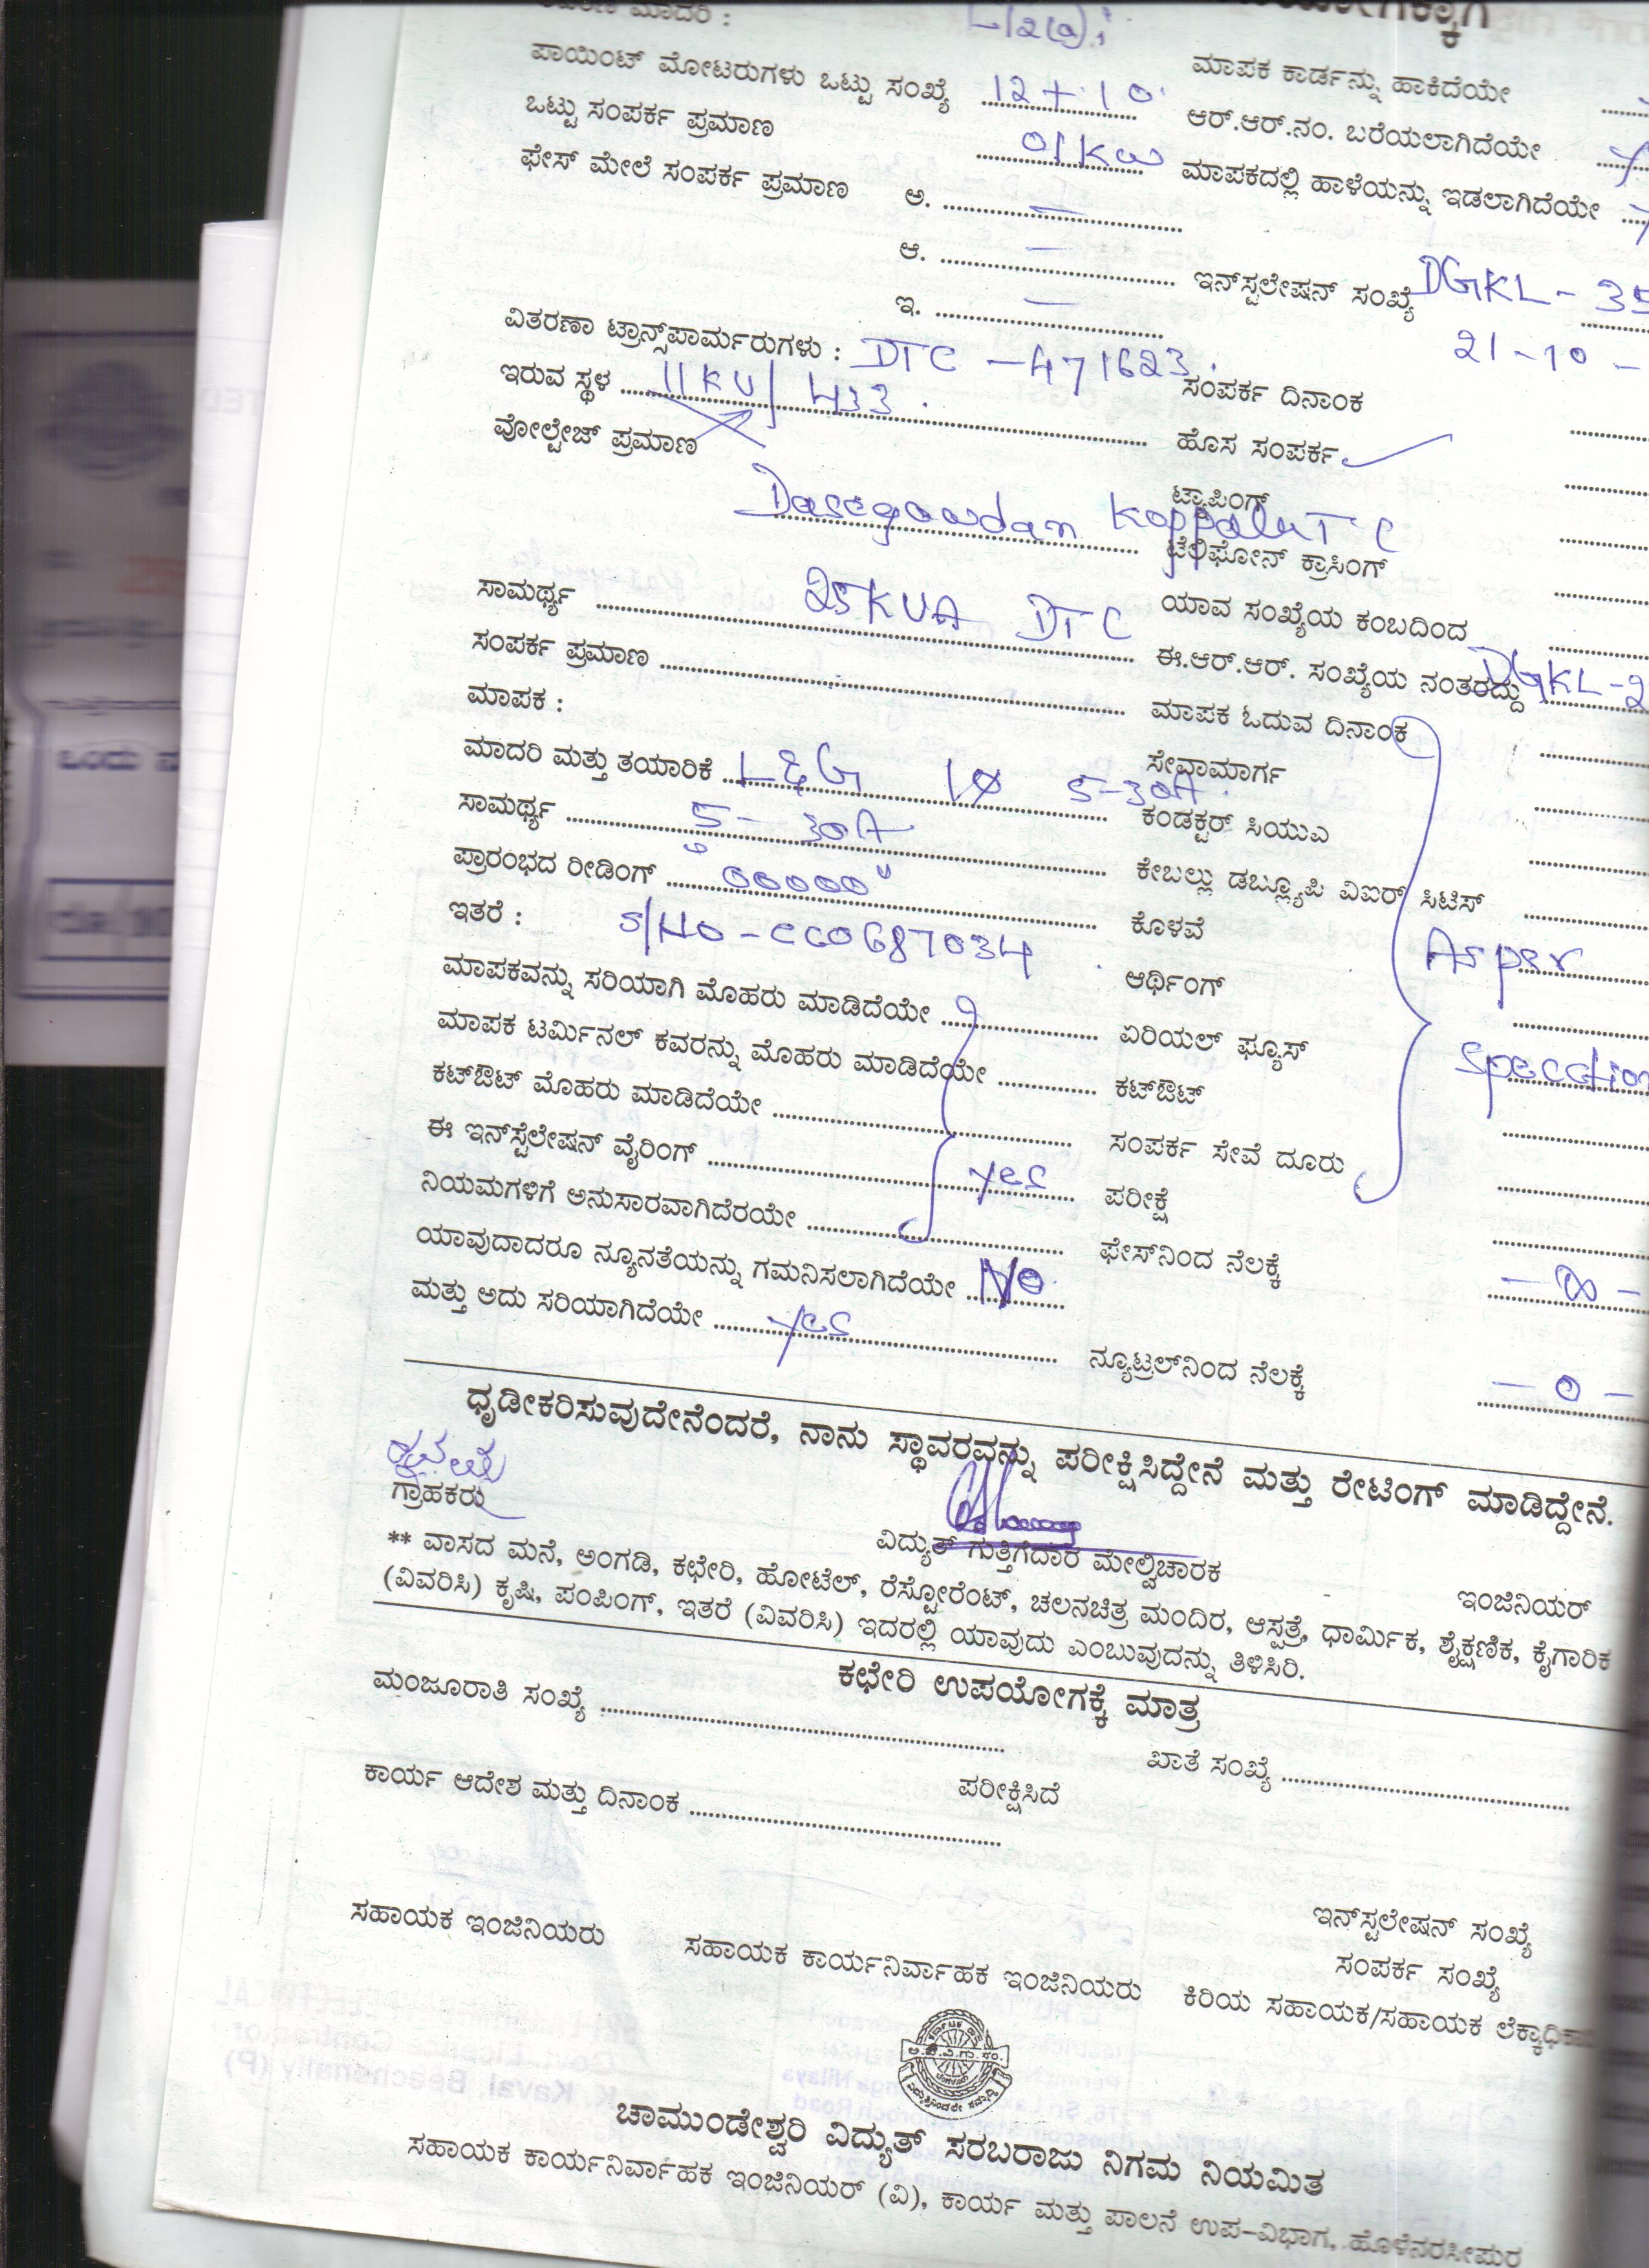 ಮಾದರಿ :
ಪಾಯಿಂಟ್ ಮೋಟರುಗಳು ಒಟ್ಟು ಸಂಖ್ಯೆ 12 + 10 ಮಾಪಕ ಕಾರ್ಡನ್ನು ಹಾಕಿದೆಯೇ
ಒಟ್ಟು ಸಂಪರ್ಕ ಪ್ರಮಾಣ 01KW ಆರ್.ಆರ್.ನಂ. ಬರೆಯಲಾಗಿದೆಯೇ
ಫೇಸ್ ಮೇಲೆ ಸಂಪರ್ಕ ಪ್ರಮಾಣ ಅ. — ಮಾಪಕದಲ್ಲಿ ಹಾಳೆಯನ್ನು ಇಡಲಾಗಿದೆಯೇ
ಆ. — ಇನ್‌ಸ್ಟಲೇಷನ್ ಸಂಖ್ಯೆ DGKL - 35
ಇ. — 21 - 10 -
ವಿತರಣಾ ಟ್ರಾನ್ಸ್‌ಪಾರ್ಮರುಗಳು : DTC - 471623. ಸಂಪರ್ಕ ದಿನಾಂಕ
ಇರುವ ಸ್ಥಳ 11KV/433. ಹೊಸ ಸಂಪರ್ಕ
ವೋಲ್ಟೇಜ್ ಪ್ರಮಾಣ ಟ್ಯಾಪಿಂಗ್
Dasegowdan Koppalu TC ಟೆಲಿಫೋನ್ ಕ್ರಾಸಿಂಗ್
ಸಾಮರ್ಥ್ಯ 25KVA DTC ಯಾವ ಸಂಖ್ಯೆಯ ಕಂಬದಿಂದ
ಸಂಪರ್ಕ ಪ್ರಮಾಣ ಈ.ಆರ್.ಆರ್. ಸಂಖ್ಯೆಯ ನಂತರದ್ದು DGKL-2
ಮಾಪಕ : ಮಾಪಕ ಓದುವ ದಿನಾಂಕ
ಮಾದರಿ ಮತ್ತು ತಯಾರಿಕೆ L&G 1Ø 5-30A. ಸೇವಾಮಾರ್ಗ
ಸಾಮರ್ಥ್ಯ 5 - 30A ಕಂಡಕ್ಟರ್ ಸಿಯುಎ
ಪ್ರಾರಂಭದ ರೀಡಿಂಗ್ "00000" ಕೇಬಲ್ಲು ಡಬ್ಲ್ಯೂಪಿ ವಿಐರ್ ಸಿಟಿಸ್
ಇತರೆ : S/No - CC0687034 ಕೊಳವೆ
ಆರ್ಥಿಂಗ್ As per
ಮಾಪಕವನ್ನು ಸರಿಯಾಗಿ ಮೊಹರು ಮಾಡಿದೆಯೇ ಏರಿಯಲ್ ಫ್ಯೂಸ್
ಮಾಪಕ ಟರ್ಮಿನಲ್ ಕವರನ್ನು ಮೊಹರು ಮಾಡಿದೆಯೇ ಕಟ್‌ಔಟ್
ಕಟ್‌ಔಟ್ ಮೊಹರು ಮಾಡಿದೆಯೇ ಸಂಪರ್ಕ ಸೇವೆ ದೂರು
ಈ ಇನ್‌ಸ್ಟೆಲೇಷನ್ ವೈರಿಂಗ್ yes ಪರೀಕ್ಷೆ
ನಿಯಮಗಳಿಗೆ ಅನುಸಾರವಾಗಿದೆರಯೇ ಫೇಸ್‌ನಿಂದ ನೆಲಕ್ಕೆ
ಯಾವುದಾದರೂ ನ್ಯೂನತೆಯನ್ನು ಗಮನಿಸಲಾಗಿದೆಯೇ No — ∞ —
ಮತ್ತು ಅದು ಸರಿಯಾಗಿದೆಯೇ yes ನ್ಯೂಟ್ರಲ್‌ನಿಂದ ನೆಲಕ್ಕೆ — 0 —
ಧೃಡೀಕರಿಸುವುದೇನೆಂದರೆ, ನಾನು ಸ್ಥಾವರವನ್ನು ಪರೀಕ್ಷಿಸಿದ್ದೇನೆ ಮತ್ತು ರೇಟಿಂಗ್ ಮಾಡಿದ್ದೇನೆ.
ಗ್ರಾಹಕರು ವಿದ್ಯುತ್ ಗುತ್ತಿಗೆದಾರ ಮೇಲ್ವಿಚಾರಕ ಇಂಜಿನಿಯರ್
** ವಾಸದ ಮನೆ, ಅಂಗಡಿ, ಕಛೇರಿ, ಹೋಟೆಲ್, ರೆಸ್ಟೋರೆಂಟ್, ಚಲನಚಿತ್ರ ಮಂದಿರ, ಆಸ್ಪತ್ರೆ, ಧಾರ್ಮಿಕ, ಶೈಕ್ಷಣಿಕ, ಕೈಗಾರಿಕ
(ವಿವರಿಸಿ) ಕೃಷಿ, ಪಂಪಿಂಗ್, ಇತರೆ (ವಿವರಿಸಿ) ಇದರಲ್ಲಿ ಯಾವುದು ಎಂಬುವುದನ್ನು ತಿಳಿಸಿರಿ.
ಕಛೇರಿ ಉಪಯೋಗಕ್ಕೆ ಮಾತ್ರ
ಮಂಜೂರಾತಿ ಸಂಖ್ಯೆ ಖಾತೆ ಸಂಖ್ಯೆ
ಕಾರ್ಯ ಆದೇಶ ಮತ್ತು ದಿನಾಂಕ ಪರೀಕ್ಷಿಸಿದೆ
ಇನ್‌ಸ್ಟಲೇಷನ್ ಸಂಖ್ಯೆ
ಸಂಪರ್ಕ ಸಂಖ್ಯೆ
ಸಹಾಯಕ ಇಂಜಿನಿಯರು ಸಹಾಯಕ ಕಾರ್ಯನಿರ್ವಾಹಕ ಇಂಜಿನಿಯರು ಕಿರಿಯ ಸಹಾಯಕ/ಸಹಾಯಕ
ಚಾಮುಂಡೇಶ್ವರಿ ವಿದ್ಯುತ್ ಸರಬರಾಜು ನಿಗಮ ನಿಯಮಿತ
ಸಹಾಯಕ ಕಾರ್ಯನಿರ್ವಾಹಕ ಇಂಜಿನಿಯರ್ (ವಿ), ಕಾರ್ಯ ಮತ್ತು ಪಾಲನೆ ಉಪ-ವಿಭಾಗ, ಹೊಳೆನರಸೀಪುರ